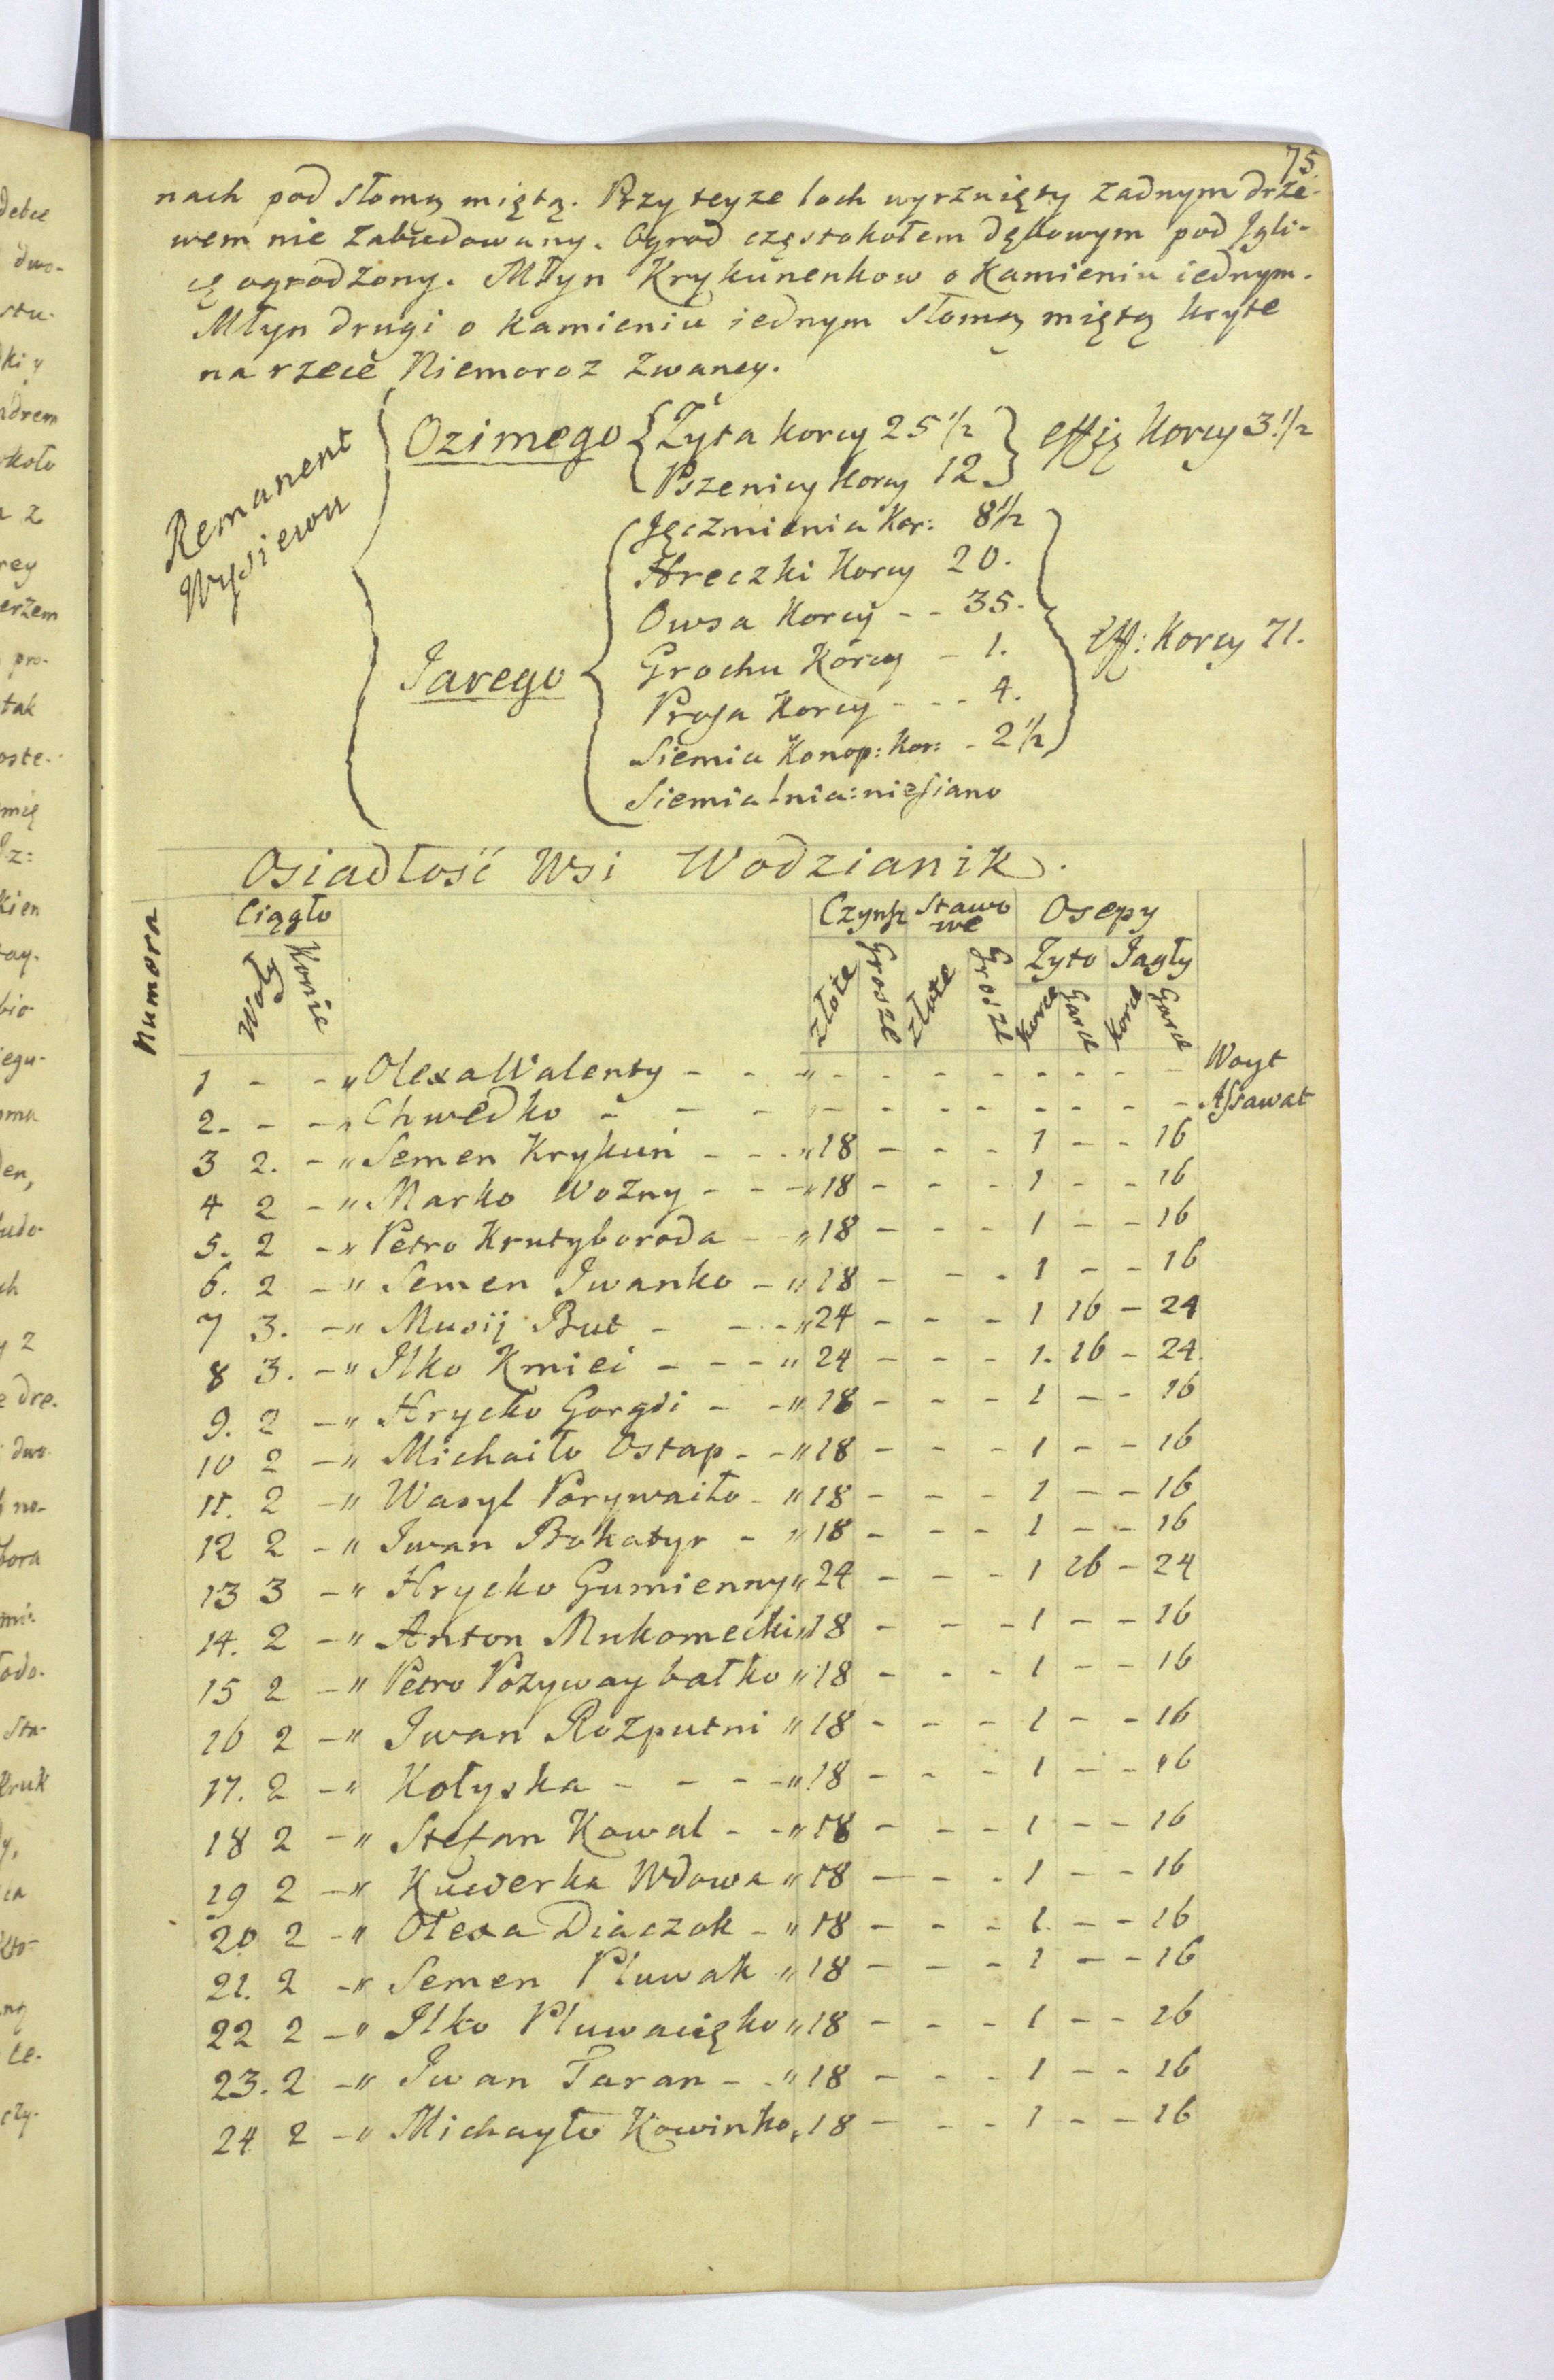 75.
nach pod słomą miętą. Przy teyze loch wyrznięty zadnym drze-
wem nie zabudowany. Ogrod częstokołem dębowym pod Jgli-
cę ogrodzony. Młyn Krykunenkow o Kamieniu iednym.
Młyn drugi o kamieniu iednym słomą miętą kryte
na rzece Niemoroz zwaney.
Remanent Wysiewu
Ozimego Zyta korcy 25 1/2 effię Korcy 3 1/2
Pszenicy Korcy 12
Jarego
Jęczmienia Kor: 8 1/2
Hreczki Korcy 20.
Owsa Korcy - - 35.
Grochu Korcy - 1. Eff: Korcy 71.
Prosa Korcy - - - 4.
Siemia Konop: Kor: - 2 1/2
Siemia lnia: niesiano
Osiadłość Wsi Wodzianik.
Numera Ciągło Czynsz Stawowe Osepy
Woły Konie Złote Grosze Złote Grosze Zyto Jagły
Korce Garce Korce Garce
1 - - " Olexa Walenty - - " - - - - - - - - Woyt
2. - - " Chwedko - - - - - - - - - - - Assawat
3 2. - " Semen Krykun - - - " 18 - - - 1 - - 16
4 2 - " Marko Wozny - - - " 18 - - - 1 - - 16
5. 2 - " Petro Krutyboroda - " 18 - - - 1 - - 16
6. 2 - " Semen Jwanko - " 18 - - - 1 - - 16
7 3. - " Musij But - - - " 24 - - - 1 16 - 24
8 3. - " Ilko Kmieć - - - " 24 - - - 1. 16 - 24.
9. 2 - " Hrycko - - " 18 - - - 1 - - 16
10 2 - " Michaiło Ostap - - " 18 - - - 1 - - 16
11. 2 - " Wasyl Porywaiło - " 18 - - - 1 - - 16
12 2 - " Jwan Bokatyr - " 18 - - - 1 - - 16
13 3 - " Hrycko Gumienny " 24 - - - 1 16 - 24
14. 2 - " Anton " 18 - - - 1 - - 16
15 2 - " Petro Pozywaybatko " 18 - - - 1 - - 16
16 2 - " Jwan Rozputni " 18 - - - 1 - - 16
17. 2 - " Kołyska - - - - " 18 - - - 1 - - 16
18 2 - " Stefan Kowal - - " 18 - - - 1 - - 16
19 2 - " Wdowa " 18 - - - 1 - - 16
20 2 - " Olexa Diaczok - " 18 - - - 1. - - 16
21. 2 - " Semen Pluwak " 18 - - - 1 - - 16
22 2 - " Ilko " 18 - - - 1 - - 16
23. 2 - " Jwan Taran - - " 18 - - - 1 - - 16
24 2 - " Michayło Kowinko " 18 - - - 1 - - 16